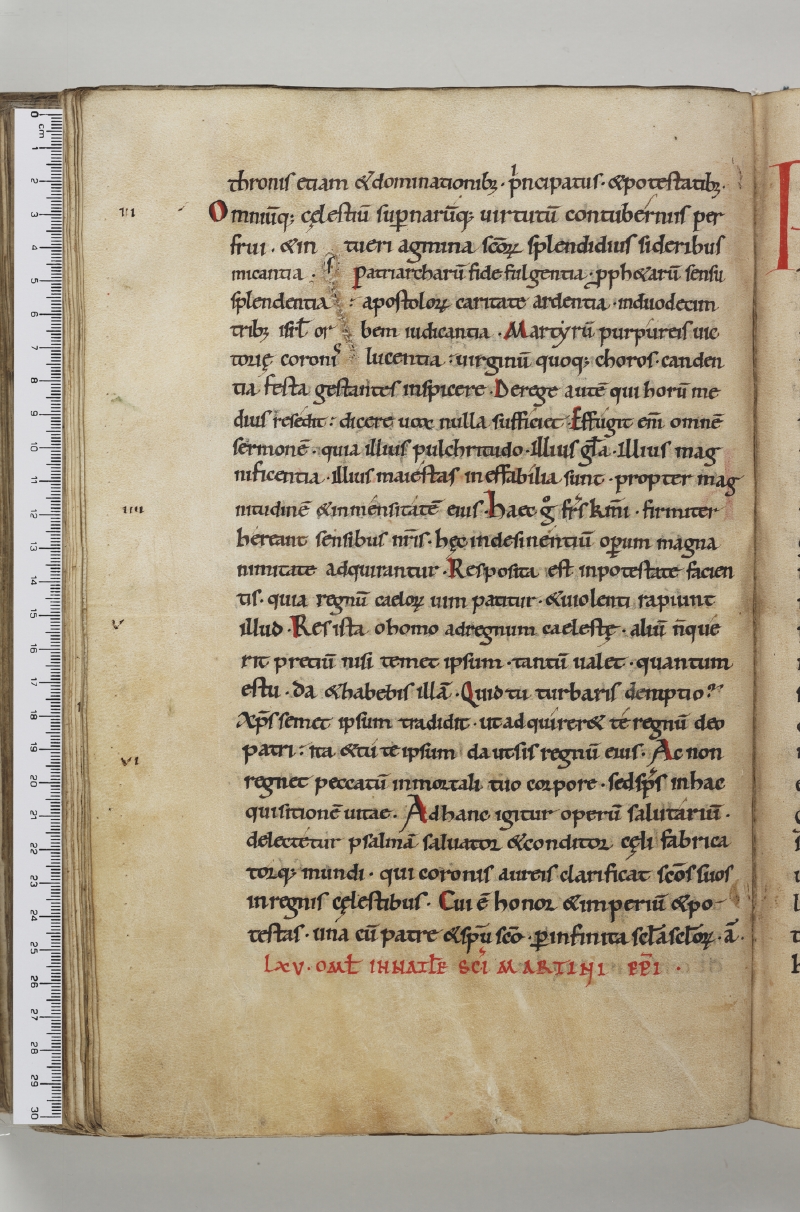 thronis etiam &dominationibꝫ · p͛ncipatus · &potestatibꝫ ·
III Omniūq; cęlestiū sup̱narūq; uirtutū contuberniis per
frui · &in tueri agmina sc̄oꝝ splendidius sideribus
micantia · Patriarcharū fide fulgentia · ꝓph&arū sensu
splendentia : apostoloꝝ caritate ardentia · induodecim
tribꝫ isr̄l or bem iudicantia · Martyrū purpureis uic
torię coronis lucentia : uirginū quoq; choros · canden
tia festa gestantes inspicere · Derege autē qui horū me
dius resedit : dicere uox nulla sufficiet · Effugit em̄ omnē
sermonē · quia illius pulchritudo · Illius gl̄a · Illius mag
nificentia · illius maiestas ineffabilia sunt · propter mag
IIII nitudinē &inmensitatē eius · Haec gͦ fr̄s km̄i · firmiter
hereant sensibus nr̄is · hęc indesinentiū oꝑum magna
nimitate adquirantur · Resposita est inpotestate facien
tis · quia regnū caeloꝝ uim patitur · &uiolenti rapiunt
V illud · Res ista ohomo adregnum caelestę · aliū n̄ que
rit preciū nisi temet ipsum · tantū ualet · quantum
estu · Da &habebis illā · Quid tu turbaris demptio?
Xp̄s semet ipsum tradidit · utadquirer& te regnū deo
VI patri : ita &tu te ipsum da utsis regnū eius · Ac non
regnet peccatū inmortali tuo corpore · sedsp̄s inhac
quisitionē uitae · Adhanc igitur operū salutariū ·
delectetur psalmā saluator &conditor cęli fabrica
torq; mundi · qui coronis aureis clarificat sc̄os suos
inregnis cęlestibus · Cui ē honor &imperiū &po
testas · una cū patre &sp̄u sc̄o · ꝑ infinita sc̄la sc̄loꝝ · ā ·
LXV · OML̄ INNATL̄E SC̄I MARTINI EP̄I ·